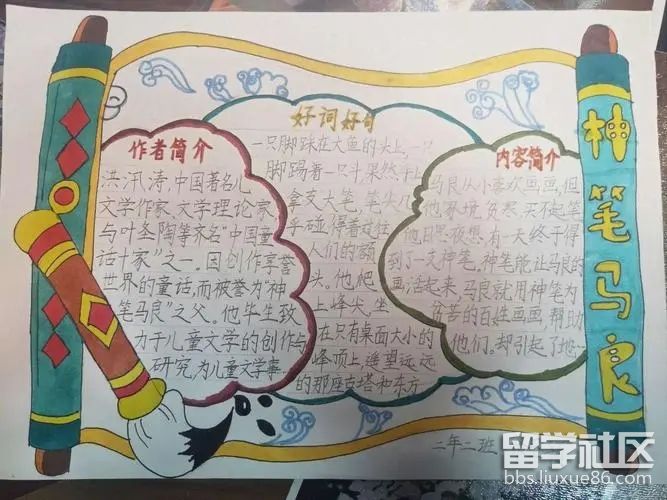 神笔马良
作者简介
洪汛涛,中国著名儿
文学作家,文学理论家
与叶圣陶等齐名"中国童
话十家"之一。因创作享誉
世界的童话,而被誉为"神
笔马良"之父。他毕生致
力于儿童文学的创作与
研究,为儿童文学事
好词好句
一只脚踩在大鱼的头上,一只
脚踢着一只
拿支大笔,笔头几
乎碰得着过往
人们的额
头。他爬
上峰尖,坐
在只有桌面大小的
峰顶上,遥望远远
的那座古塔和东方
内容简介
马良从小喜欢画画,但
他家境贫寒,买不起笔
他日思夜想,有一天终于得
到了一支神笔。神笔能让马良的
画活起来,马良就用神笔为
贫苦的百姓画画,帮助
他们。却引起了地
二年二班
留学社区
bbs.liuxue86.com